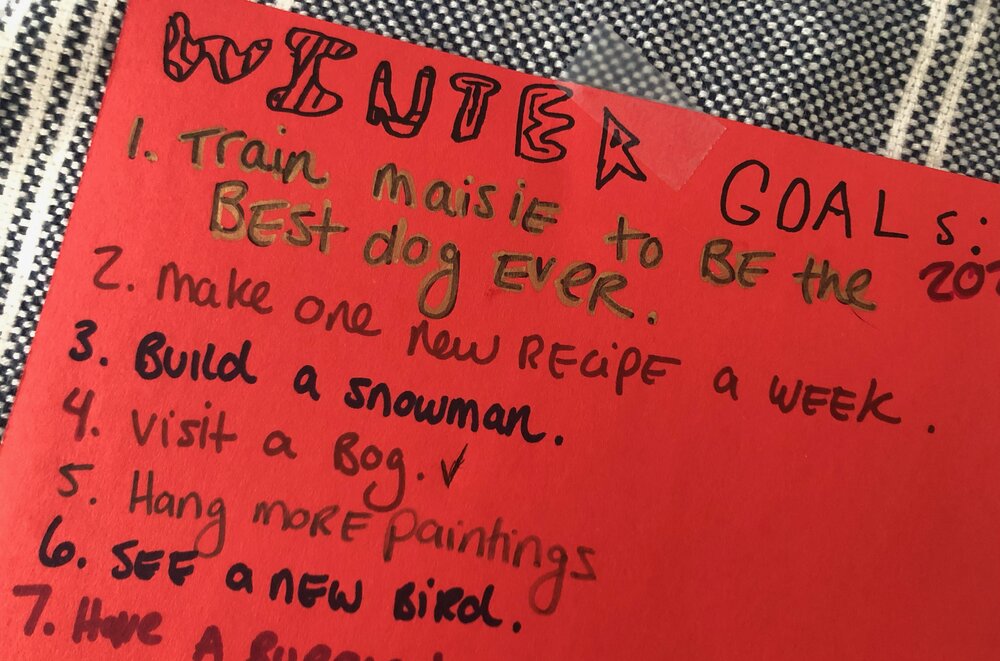 WINTER GOALS:
1. Train maisiE to BE the
BEST dog EVER.
2. make one new RECiPE a WEEK.
3. Build a snowman.
4. visit a Bog. ✓
5. Hang moRE paintings
6. SEE a NEW BiRd.
7. Have A